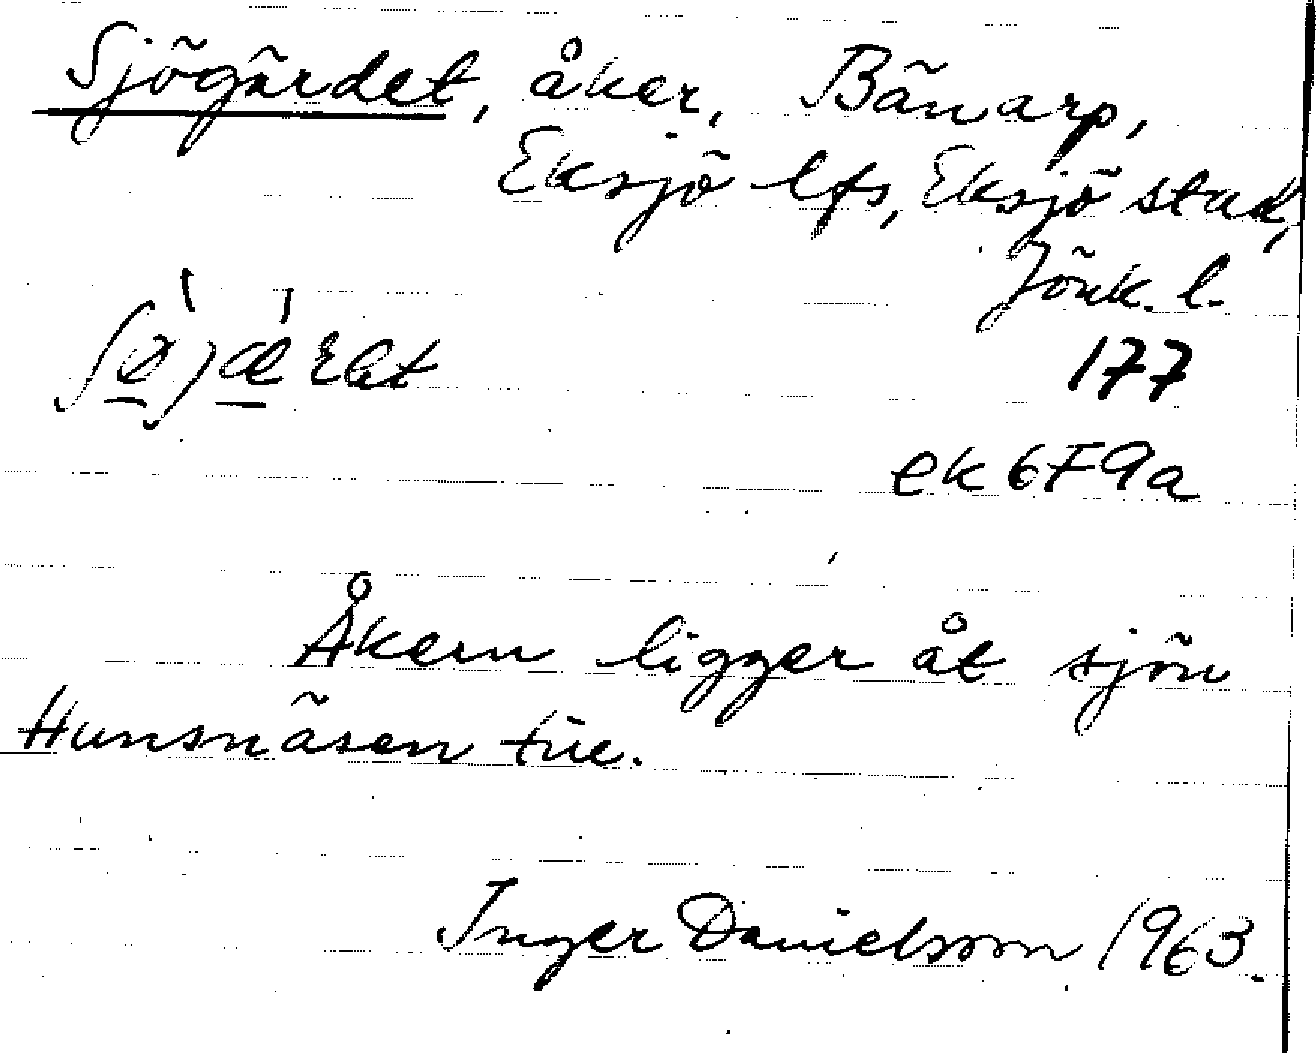 Sjögärdet, åker, Bänarp,
Eksjö lfs, Eksjö stad,
Jönk. l.
177
ek 6F9a
Åkern ligger åt sjön
Hunsnäsen till.
Inger Danielsson 1963.